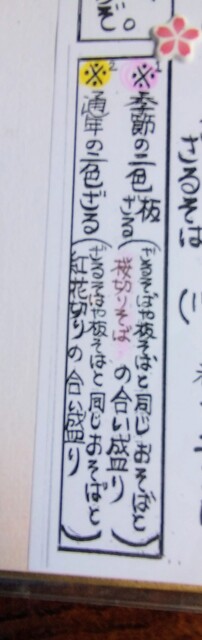 ざるそば(
ぞ。
※1 季節の二色板
ざる
(ざるそばや板そばと同じおそばと
桜切りそばの合い盛り)
※2 通年の二色ざる
(ざるそばや板そばと同じおそばと
紅花切りの合い盛り)